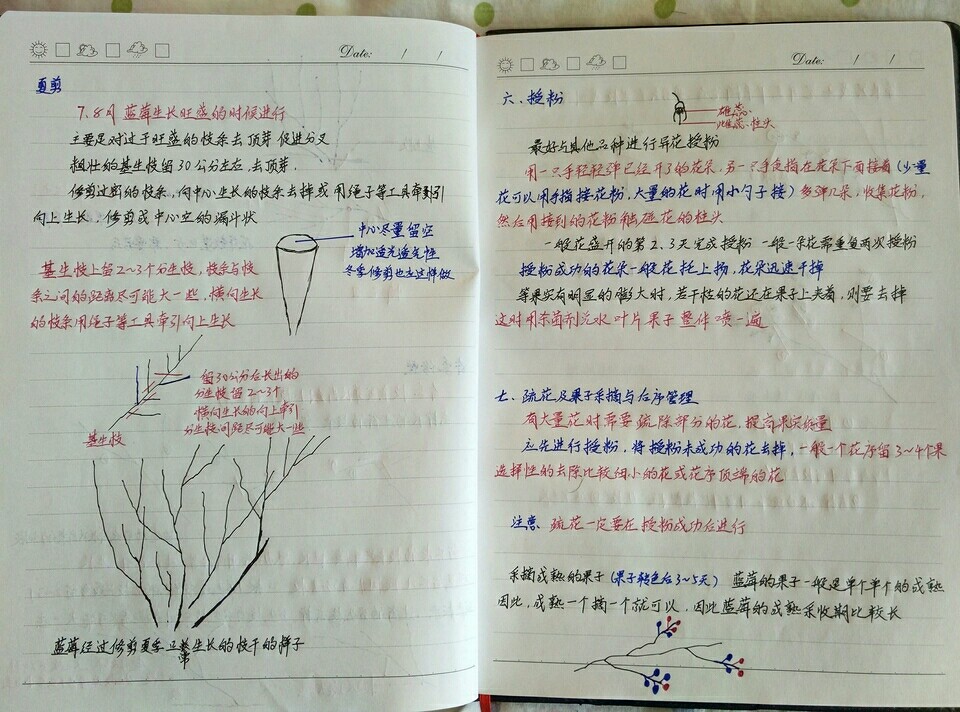 Date: / /
夏剪
7.8月蓝莓生长旺盛的时候进行
主要是对过于旺盛的枝条去顶芽促进分叉
粗壮的基生枝留30公分左右,去顶芽.
修剪过密的枝条,向中心生长的枝条去掉或用绳子等工具牵引
向上生长,修剪成中心空的漏斗状
中心尽量留空
增加透光透气性
冬季修剪也是这样做
基生枝上留2~3个分生枝,枝条与枝
条之间的距离尽可能大一些,横向生长
的枝条用绳子等工具牵引向上生长
留30公分后长出的
分生枝留2~3个
横向生长的向上牵引
分生枝间距尽可能大一些
基生枝
蓝莓经过修剪夏季正常生长的枝干的样子
Date: / /
六、授粉
雄蕊.
雌蕊.柱头
最好与其他品种进行异花授粉
用一只手轻轻弹已经开了的花朵,另一只手手指在花朵下面接着(少量
花可以用手指接花粉,大量的花时用小勺子接)多弹几朵,收集花粉,
然后用接到的花粉触碰花的柱头
一般花盛开的第2.3天完成授粉 一般一朵花需重复两次授粉
授粉成功的花朵一般花托上扬,花朵迅速干掉
等果实有明显的膨大时,若干枯的花还在果子上夹着,则要去掉
这时用杀菌剂兑水 叶片果子整体喷一遍
七、疏花及果子采摘与后序管理
有大量花时需要疏除部分的花,提高果实质量
应先进行授粉,将授粉未成功的花去掉,一般一个花序留3~4个果
选择性的去除比较细小的花或花序顶端的花
注意 疏花一定要在授粉成功后进行
采摘成熟的果子(果子转色后3~5天) 蓝莓的果子一般是单个单个的成熟
因此,成熟一个摘一个就可以,因此蓝莓的成熟采收期比较长